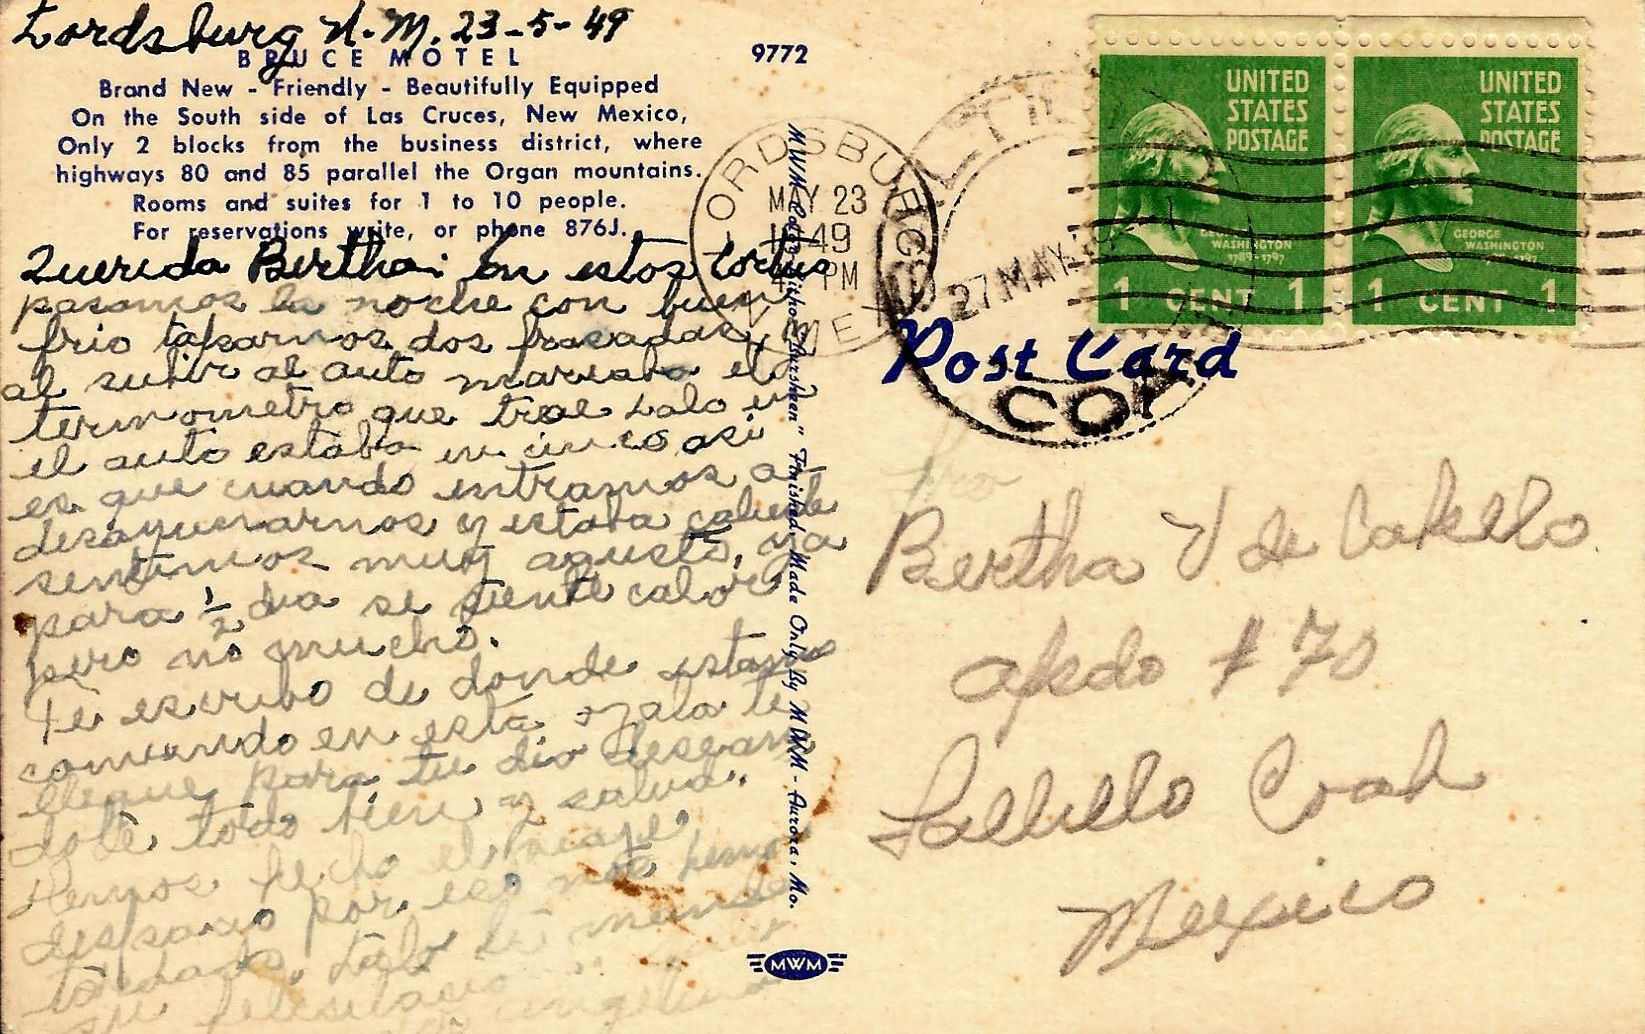 Lordsburg N.M. 23-5-49
BRUCE MOTEL
9772
Brand New - Friendly - Beautifully Equipped
On the South side of Las Cruces, New Mexico,
Only 2 blocks from the business district, where
highways 80 and 85 parallel the Organ mountains.
Rooms and suites for 1 to 10 people.
For reservations write, or phone 876J.
Querida Bertha: En estos cortus
pasamos la noche con buen
frio taparnos dos frasadas,
al subir al auto marcaba el
termometro que trae Lalo en
el auto estaba en cinco asi
es que cuando entramos a
desayunarnos y estaba caliente
sentimos muy agusto, ya
para 1/2 dia se siente calor
pero no mucho.
Te escribo de donde estamos
comiendo en esta ojala te
llegue para tu dia desean
dote todo bien y salud.
Hemos hecho el viaje
despacio por eso nos hemos
tardado. Lalo te manda
su
MWM Color-Litho "Bursheen" Finished Made Only By MWM - Aurora, Mo.
MWM
LORDSBURG
MAY 23
1949
PM
N. MEX.
27 MAY
UNITED
STATES
POSTAGE
GEORGE
WASHINGTON
1789-1797
1 CENT 1
UNITED
STATES
POSTAGE
GEORGE
WASHINGTON
1 CENT 1
Post Card
Bertha V de Cabello
Apdo # 70
Saltillo Coah
Mexico